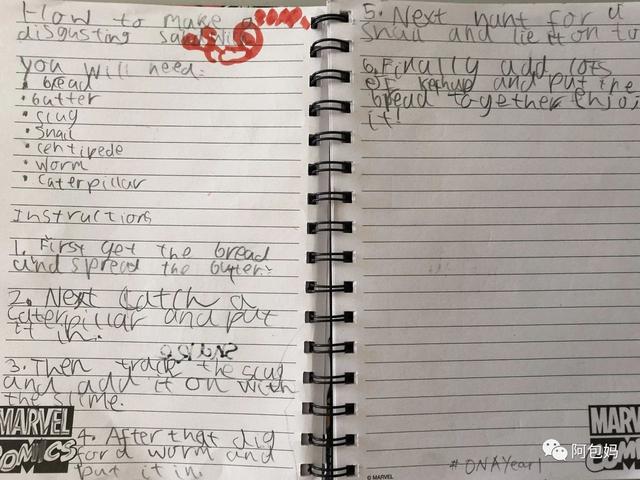 How to make a
disgusting sandwich
you will need:
• bread
• butter
• slug
• snail
• centipede
• worm
• caterpillar
Instructions
1. First get the bread
and spread the butter.
2. Next catch a
caterpillar and put
it in.
3. Then track the slug
and add it on with
the slime.
4. After that dig
for a worm and
put it in.
MARVEL
COMICS
5. Next hunt for a
snail and lie it on to
6. Finally add lots
of kechup and put the
bread together enjoi
it!
MARVEL
© MARVEL
#DNAYear1
阿包妈